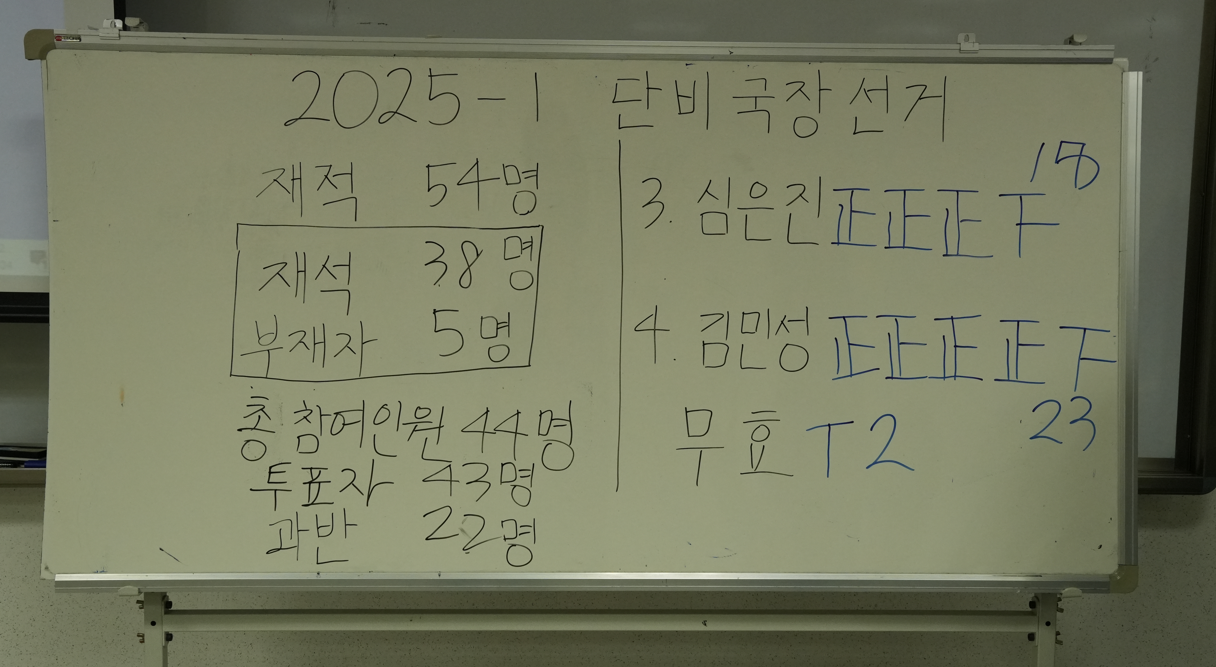 2025-1 단비 국장 선거
재적 54명
재석 38명
부재자 5명
총 참여인원 44명
투표자 43명
과반 22명
18
3. 심은진 正正正下
4. 김민성 正正正正下
23
무효 T 2